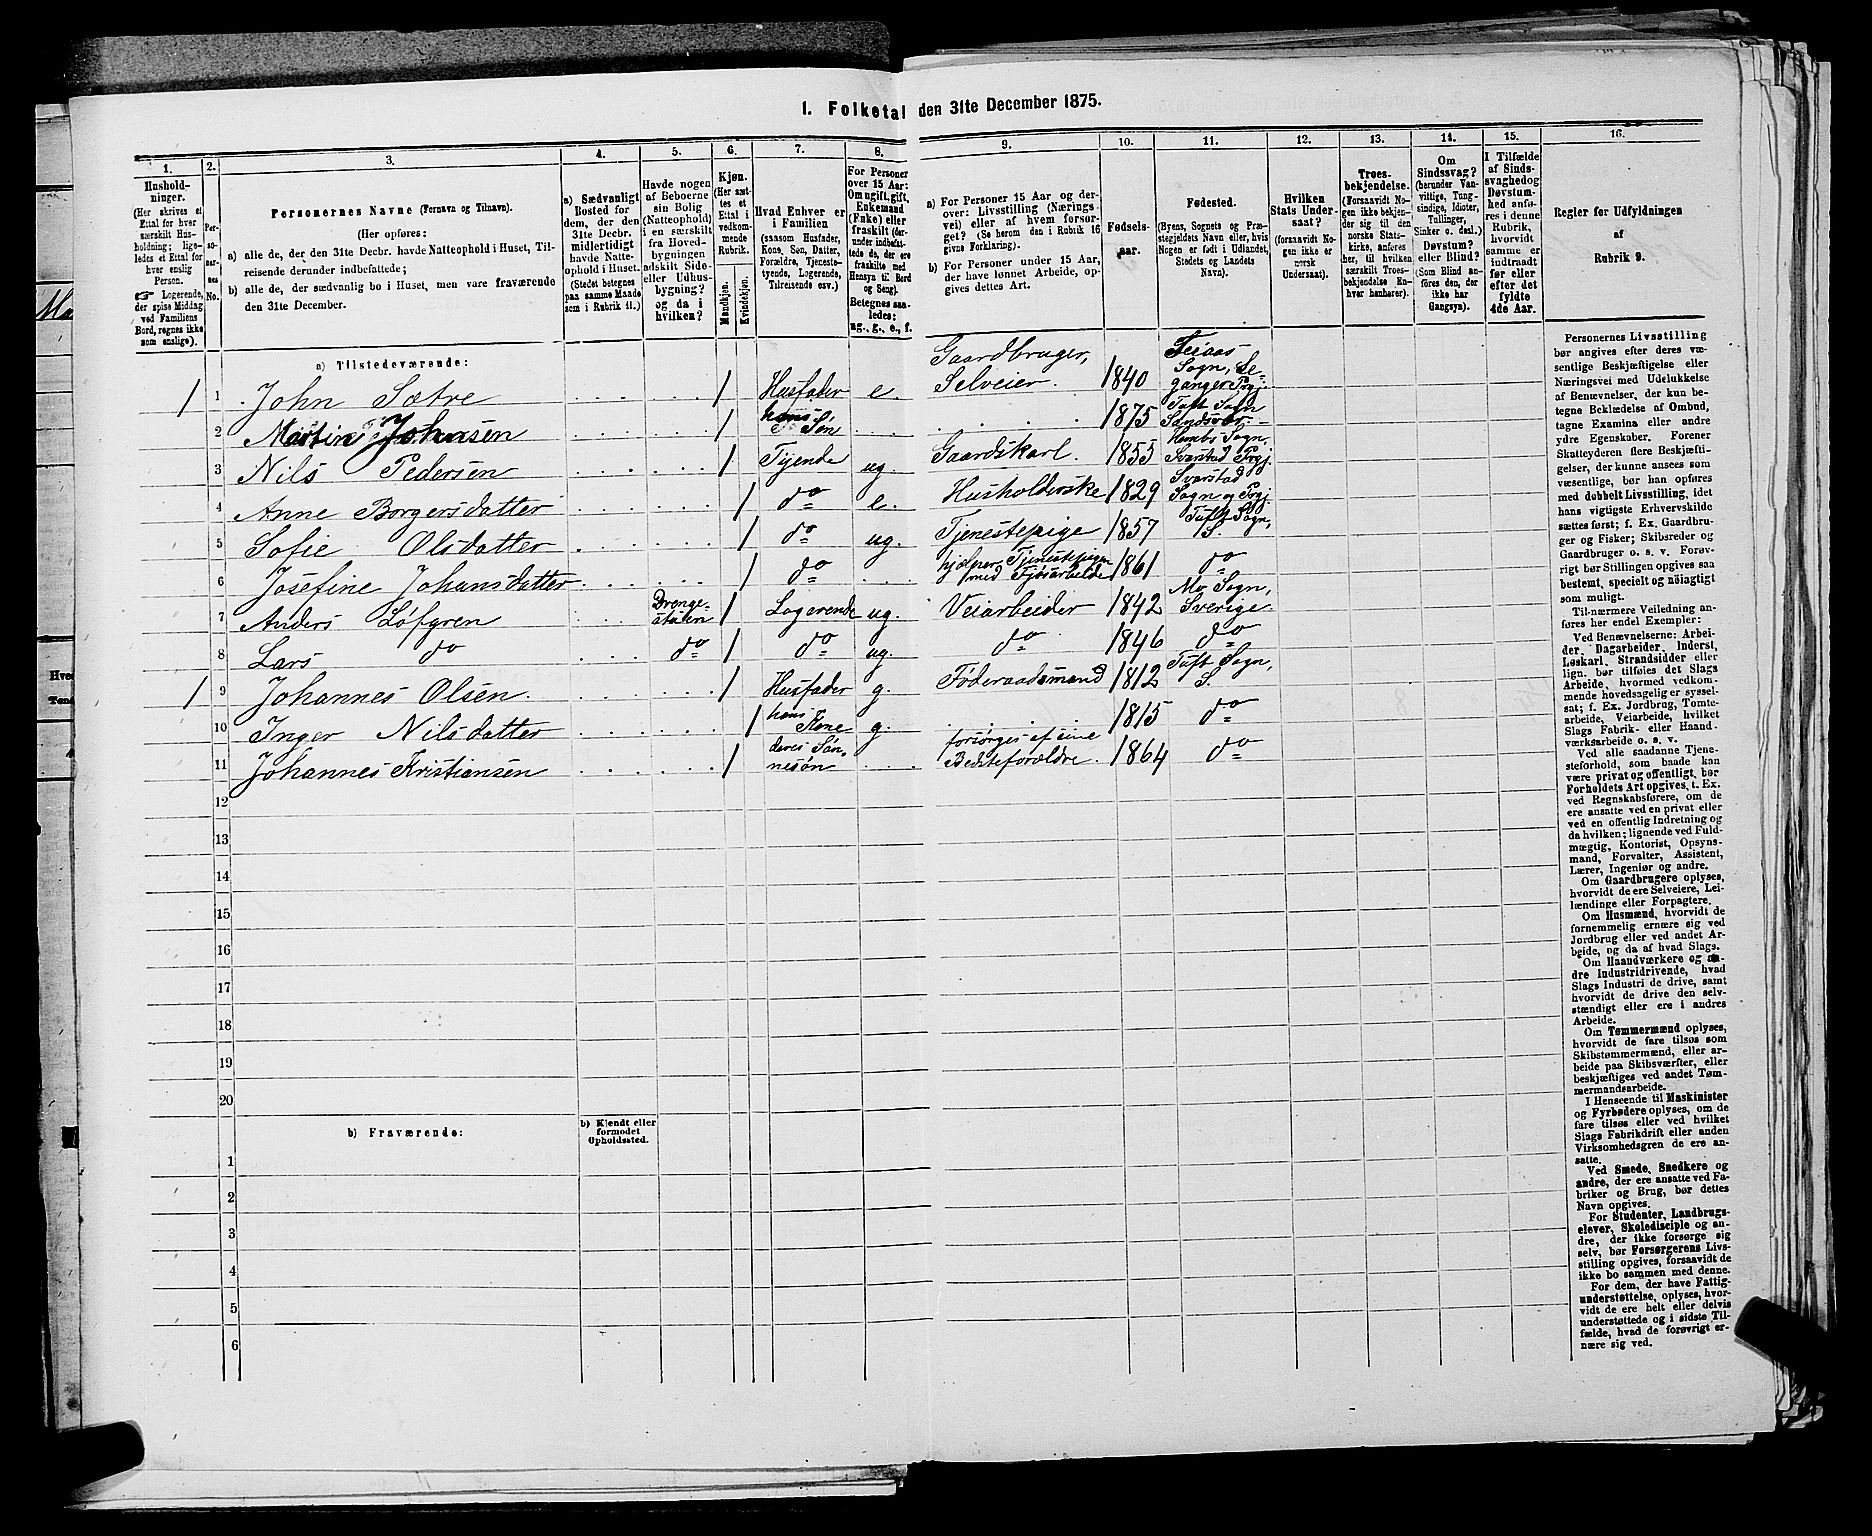 I. Folketal den 31te December 1875.
1. 2. 3. 4. 5. 6. 7. 8. 9. 10. 11. 12. 13. 14. 15. 16.
Hushold-
ninger.
(Her skrives et
Ettal for hver
særskilt Hus-
holdning; lige-
ledes et Ettal for
hver enslig
Person.
☞ Logerende,
der spise Middag
ved Familiens
Bord, regnes ikke
som enslige).
Per-
so-
ner-
nes
No.
Personernes Navne (Fornavn og Tilnavn).
(Her opføres:
a) alle de, der den 31te Decbr. havde Natteophold i Huset, Til-
reisende derunder indbefattede;
b) alle de, der sædvanlig bo i Huset, men vare fraværende
den 31te December.
a) Sædvanligt
Bosted for
dem, der den
31te Decbr.
midlertidigt
havde Natte-
ophold i Huset.
(Stedet betegnes
paa samme Maade
som i Rubrik 11.)
Havde nogen
af Beboerne
sin Bolig
(Natteophold)
i en særskilt
fra Hoved-
bygningen
adskilt Side-
eller Udhus-
bygning?
og da i
hvilken?
Kjøn.
(Her sæt-
tes et
Ettal i
vedkom-
mende
Rubrik.
Mandkjøn.
Kvindekjøn.
Hvad Enhver er
i Familien
(saasom Husfader,
Kone, Søn, Datter,
Forældre, Tjeneste-
tyende, Logerende,
Tilreisende osv.)
For Personer
over 15 Aar:
Om ugift, gift,
Enkemand
(Enke) eller
fraskilt (der-
under indbefat-
tede de, der ere
fraskilte med
Hensyn til Bord
og Seng).
Betegnes saa-
ledes:
ug., g., e., f.
a) For Personer 15 Aar og der-
over: Livsstilling (Nærings-
vei) eller af hvem forsør-
get? (Se herom den i Rubrik 16
givne Forklaring).
b) For Personer under 15 Aar,
der have lønnet Arbeide, op-
gives dettes Art.
Fødsels-
aar.
Fødested.
(Byens, Sognets og Præ-
stegjeldets Navn eller, hvis
Nogen er født i Udlandet,
Stedets og Landets
Navn).
Hvilken
Stats Under-
saat?
(forsaavidt No-
gen ikke er
norsk
Undersaat).
Troes-
bekjendelse.
(Forsaavidt No-
gen ikke bekjen-
der sig til den
norske Stats-
kirke, anføres
her, til hvilken
særskilt Troes-
bekjendelse En-
hver henhører).
Om
Sindssvag?
(herunder Van-
vittige, Tung-
sindige, Idioter,
Tullinger,
Sinker o. desl.)
Døvstum?
eller Blind?
(Som Blind an-
føres den, der
ikke har
Gangsyn).
I Tilfælde
af Sinds-
svaghed og
Døvstum-
hed anfø-
res i denne
Rubrik,
hvorvidt
samme er
indtraadt
før eller
efter det
fyldte
4de Aar.
Regler for Udfyldningen
af
Rubrik 9.
a) Tilstedeværende:
1 1 John Sætre 1 Husfader e. Gaardbruger, Selveier. 1840 Feiaas Sogn, Leganger Prgj.
2 Martin Johnsen 1 hans Søn 1875 Tuft Sogn Sandsvær
3 Nils Pedersen 1 Tjende ug. Gaardskarl. 1855 Hembs Sogn, Svarstad Prgj.
4 Anne Borgersdatter 1 do e. Husholderske 1829 Svarstad Sogn og Prgj.
5 Sofie Olsdatter 1 do ug. Tjenestepige 1857 Tuft Sogn, S.
6 Josefine Johansdatter 1 do hjelper Tjenestepigen med Fjøsarbeide 1861 do
7 Anders Løfgren Drengestuen 1 Logerende ug. Veiarbeider 1842 Mo Sogn, Sverige
8 Lars do do 1 do ug. do 1846 do
1 9 Johannes Olsen 1 Husfader g. Føderaadsmand 1812 Tuft Sogn, S.
10 Inger Nilsdatter 1 hans Kone g. 1815 do
11 Johannes Kristiansen 1 deres Sønnesøn forsørges af sine Bedsteforældre. 1864 do
12
13
14
15
16
17
18
19
20
b) Fraværende:
b) Kjendt eller
formodet
Opholdssted.
1
2
3
4
5
6
Personernes Livsstilling
bør angives efter deres væ-
sentlige Beskjæftigelse eller
Næringsvei med Udelukkelse
af Benævnelser, der kun be-
tegne Beklædelse af Ombud,
tagne Examina eller andre
ydre Egenskaber. Forener
Skatteyderen flere Beskjæfti-
gelser, der kunne ansees som
væsentlige, bør han opføres
med dobbelt Livsstilling, idet
hans vigtigste Erhvervskilde
sættes først; f. Ex. Gaardbru-
ger og Fisker; Skibsreder og
Gaardbruger o. s. v. Forøv-
rigt bør Stillingen opgives saa
bestemt, specielt og nöiagtigt
som muligt.
Til nærmere Veiledning an-
føres her endel Exempler:
Ved Benævnelserne: Arbei-
der, Dagarbeider, Inderst,
Løskarl, Strandsidder eller
lign. bør tilføies det Slags
Arbeide, hvormed vedkom-
mende hovedsagelig er syssel-
sat; f. Ex. Jordbrug, Tomte-
arbeide, Veiarbeide, hvilket
Slags Fabrik- eller Haand-
værksarbeide o. s. v.
Ved alle saadanne Tjene-
steforhold, som baade kan
være privat og offentligt, bør
Forholdets Art opgives, t. Ex.
ved Regnskabsførere, om de
ere ansatte ved en privat eller
ved en offentlig Indretning og
da hvilken; lignende ved Fuld-
mægtig, Kontorist, Opsyns-
mand, Forvalter, Assistent,
Lærer, Ingeniør og andre.
Om Gaardbrugere oplyses,
hvorvidt de ere Selveiere, Lei-
lændinge eller Forpagtere.
Om Husmænd, hvorvidt de
fornemmelig ernære sig ved
Jordbrug eller ved andet Ar-
beide, og da af hvad Slags.
Om Haandværkere og an-
dre Industridrivende, hvad
Slags Industri de drive, samt
hvorvidt de drive den selv-
stændigt eller ere i andres
Arbeide.
Om Tømmermænd oplyses,
hvorvidt de fare tilsøs som
Skibstømmermænd, eller ar-
beide paa Skibsværfter, eller
beskjæftiges ved andet Tøm-
mermandsarbeide.
I Henseende til Maskinister
og Fyrbødere oplyses, om de
fare tilsøs eller ved hvilket
Slags Fabrikdrift eller anden
Virksomhedsgren de ere an-
satte.
Ved Smede, Snedkere og
andre, der ere ansatte ved Fa-
briker og Brug, bør dettes
Navn opgives.
For Studenter, Landbrugs-
elever, Skoledisciple og an-
dre, der ikke forsørge sig
selv, bør Forsørgerens Livs-
stilling opgives, forsaavidt de
ikke bo sammen med denne.
For dem, der have Fattig-
understøttelse, oplyses, hvor-
vidt de ere helt eller delvis
understøttede og i sidste Til-
fælde, hvad de forøvrigt er-
nære sig ved.